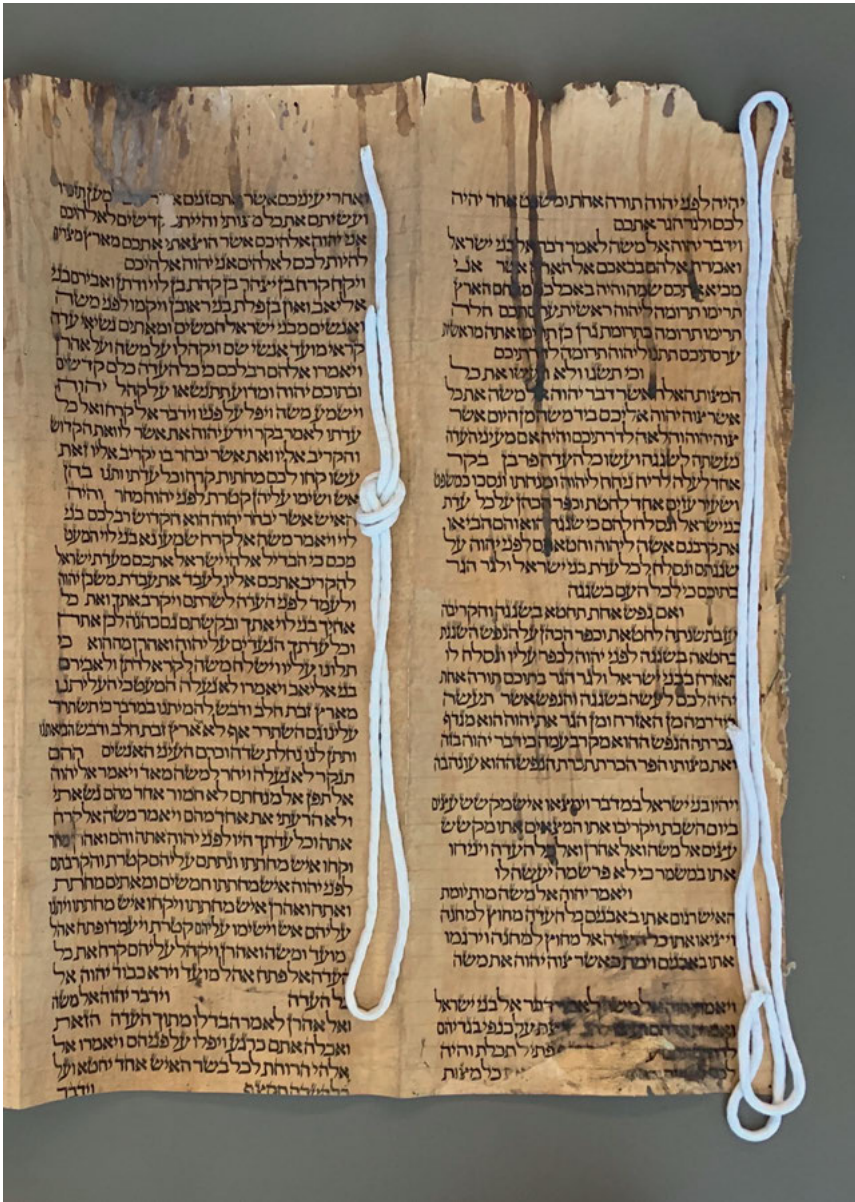 יהיה לפני יהוה תורה אחת ומשפט אחד יהיה
לכם ולגר הגר אתכם
וידבר יהוה אל משה לאמר דבר אל בני ישראל
ואמרת אלהם בבאכם אל הארץ אשר אני
מביא אתכם שמה והיה באכלכם מלחם הארץ
תרימו תרומה ליהוה ראשית ערסתכם חלה
תרימו תרומה כתרומת גרן כן תרימו אתה מראשית
ערסתיכם תתנו ליהוה תרומה לדרתיכם
וכי תשגו ולא תעשו את כל
המצות האלה אשר דבר יהוה אל משה את כל
אשר צוה יהוה אליכם ביד משה מן היום אשר
צוה יהוה והלאה לדרתיכם והיה אם מעיני העדה
נעשתה לשגגה ועשו כל העדה פר בן בקר
אחד לעלה לריח ניחח ליהוה ומנחתו ונסכו כמשפט
ושעיר עזים אחד לחטת וכפר הכהן על כל עדת
בני ישראל ונסלח להם כי שגגה הוא והם הביאו
את קרבנם אשה ליהוה וחטאתם לפני יהוה על
שגגתם ונסלח לכל עדת בני ישראל ולגר הגר
בתוכם כי לכל העם בשגגה
ואם נפש אחת תחטא בשגגה והקריבה
עז בת שנתה לחטאת וכפר הכהן על הנפש השגגת
בחטאה בשגגה לפני יהוה לכפר עליו ונסלח לו
האזרח בבני ישראל ולגר הגר בתוכם תורה אחת
יהיה לכם לעשה בשגגה והנפש אשר תעשה
ביד רמה מן האזרח ומן הגר את יהוה הוא מגדף
ונכרתה הנפש ההוא מקרב עמה כי דבר יהוה בזה
ואת מצותו הפר הכרת תכרת הנפש ההוא עונה בה
ויהיו בני ישראל במדבר וימצאו איש מקשש עצים
ביום השבת ויקריבו אתו המצאים אתו מקשש
עצים אל משה ואל אהרן ואל כל העדה ויניחו
אתו במשמר כי לא פרש מה יעשה לו
ויאמר יהוה אל משה מות יומת
האיש רגום אתו באבנים כל העדה מחוץ למחנה
ויציאו אתו כל העדה אל מחוץ למחנה וירגמו
אתו באבנים וימת כאשר צוה יהוה את משה
ויאמר יהוה אל משה לאמר דבר אל בני ישראל
על כנפי בגדיהם
פתיל תכלת והיה
את כל מצות
ואחרי עיניכם אשר אתם זנים
ועשיתם את כל מצותי והייתם קדשים לאלהיכם
אני יהוה אלהיכם אשר הוצאתי אתכם מארץ מצרים
להיות לכם לאלהים אני יהוה אלהיכם
ויקח קרח בן יצהר בן קהת בן לוי ודתן ואבירם בני
אליאב ואון בן פלת בני ראובן ויקמו לפני משה
ואנשים מבני ישראל חמשים ומאתים נשיאי עדה
קראי מועד אנשי שם ויקהלו על משה ועל אהרן
ויאמרו אלהם רב לכם כי כל העדה כלם קדשים
ובתוכם יהוה ומדוע תתנשאו על קהל יהוה
וישמע משה ויפל על פניו וידבר אל קרח ואל כל
עדתו לאמר בקר וידע יהוה את אשר לו ואת הקדוש
והקריב אליו ואת אשר יבחר בו יקריב אליו זאת
עשו קחו לכם מחתות קרח וכל עדתו ותנו בהן
אש ושימו עליהן קטרת לפני יהוה מחר והיה
האיש אשר יבחר יהוה הוא הקדוש רב לכם בני
לוי ויאמר משה אל קרח שמעו נא בני לוי המעט
מכם כי הבדיל אלהי ישראל אתכם מעדת ישראל
להקריב אתכם אליו לעבד את עבדת משכן יהוה
ולעמד לפני העדה לשרתם ויקרב אתך ואת כל
אחיך בני לוי אתך ובקשתם גם כהנה לכן אתה
וכל עדתך הנעדים על יהוה ואהרן מה הוא כי
תלונו עליו וישלח משה לקרא לדתן ולאבירם
בני אליאב ויאמרו לא נעלה המעט כי העליתנו
מארץ זבת חלב ודבש להמיתנו במדבר כי תשתרר
עלינו גם השתרר אף לא אל ארץ זבת חלב ודבש הביאתנו
ותתן לנו נחלת שדה וכרם העיני האנשים ההם
תנקר לא נעלה ויחר למשה מאד ויאמר אל יהוה
אל תפן אל מנחתם לא חמור אחד מהם נשאתי
ולא הרעתי את אחד מהם ויאמר משה אל קרח
אתה וכל עדתך היו לפני יהוה אתה והם ואהרן מחר
וקחו איש מחתתו ונתתם עליהם קטרת והקרבתם
לפני יהוה איש מחתתו חמשים ומאתים מחתת
ואתה ואהרן איש מחתתו ויקחו איש מחתתו ויתנו
עליהם אש וישימו עליהם קטרת ויעמדו פתח אהל
מועד ומשה ואהרן ויקהל עליהם קרח את כל
העדה אל פתח אהל מועד וירא כבוד יהוה אל
כל העדה וידבר יהוה אל משה
ואל אהרן לאמר הבדלו מתוך העדה הזאת
ואכלה אתם כרגע ויפלו על פניהם ויאמרו אל
אלהי הרוחת לכל בשר האיש אחד יחטא ועל
כל העדה תקצף וידבר